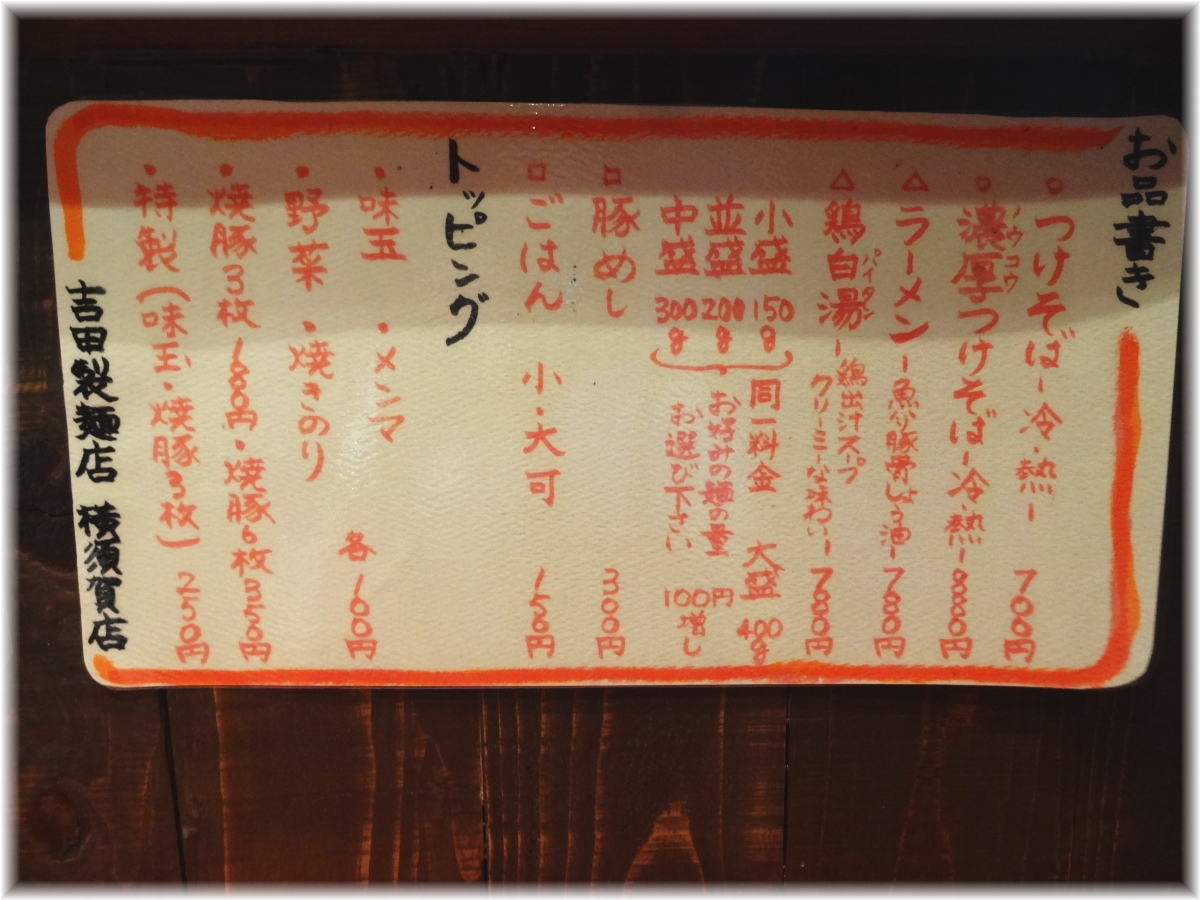 お品書き
つけそば－冷・熱－ 700円
濃厚つけそば－冷・熱－ 880円
ノウコウ
ラーメン－魚介豚骨しょう油－ 780円
鶏白湯－鶏出汁スープ
パイタン
クリーミーな味わい－ 780円
小盛 150g 同一料金 大盛 400g
並盛 200g お好みの麺の量 100円増し
中盛 300g お選び下さい
豚めし 300円
ごはん 小・大可 150円
トッピング
・味玉 ・メンマ
・野菜 ・焼きのり 各100円
・焼豚3枚 180円・焼豚6枚 350円
・特製(味玉・焼豚3枚) 250円
吉田製麺店 横須賀店